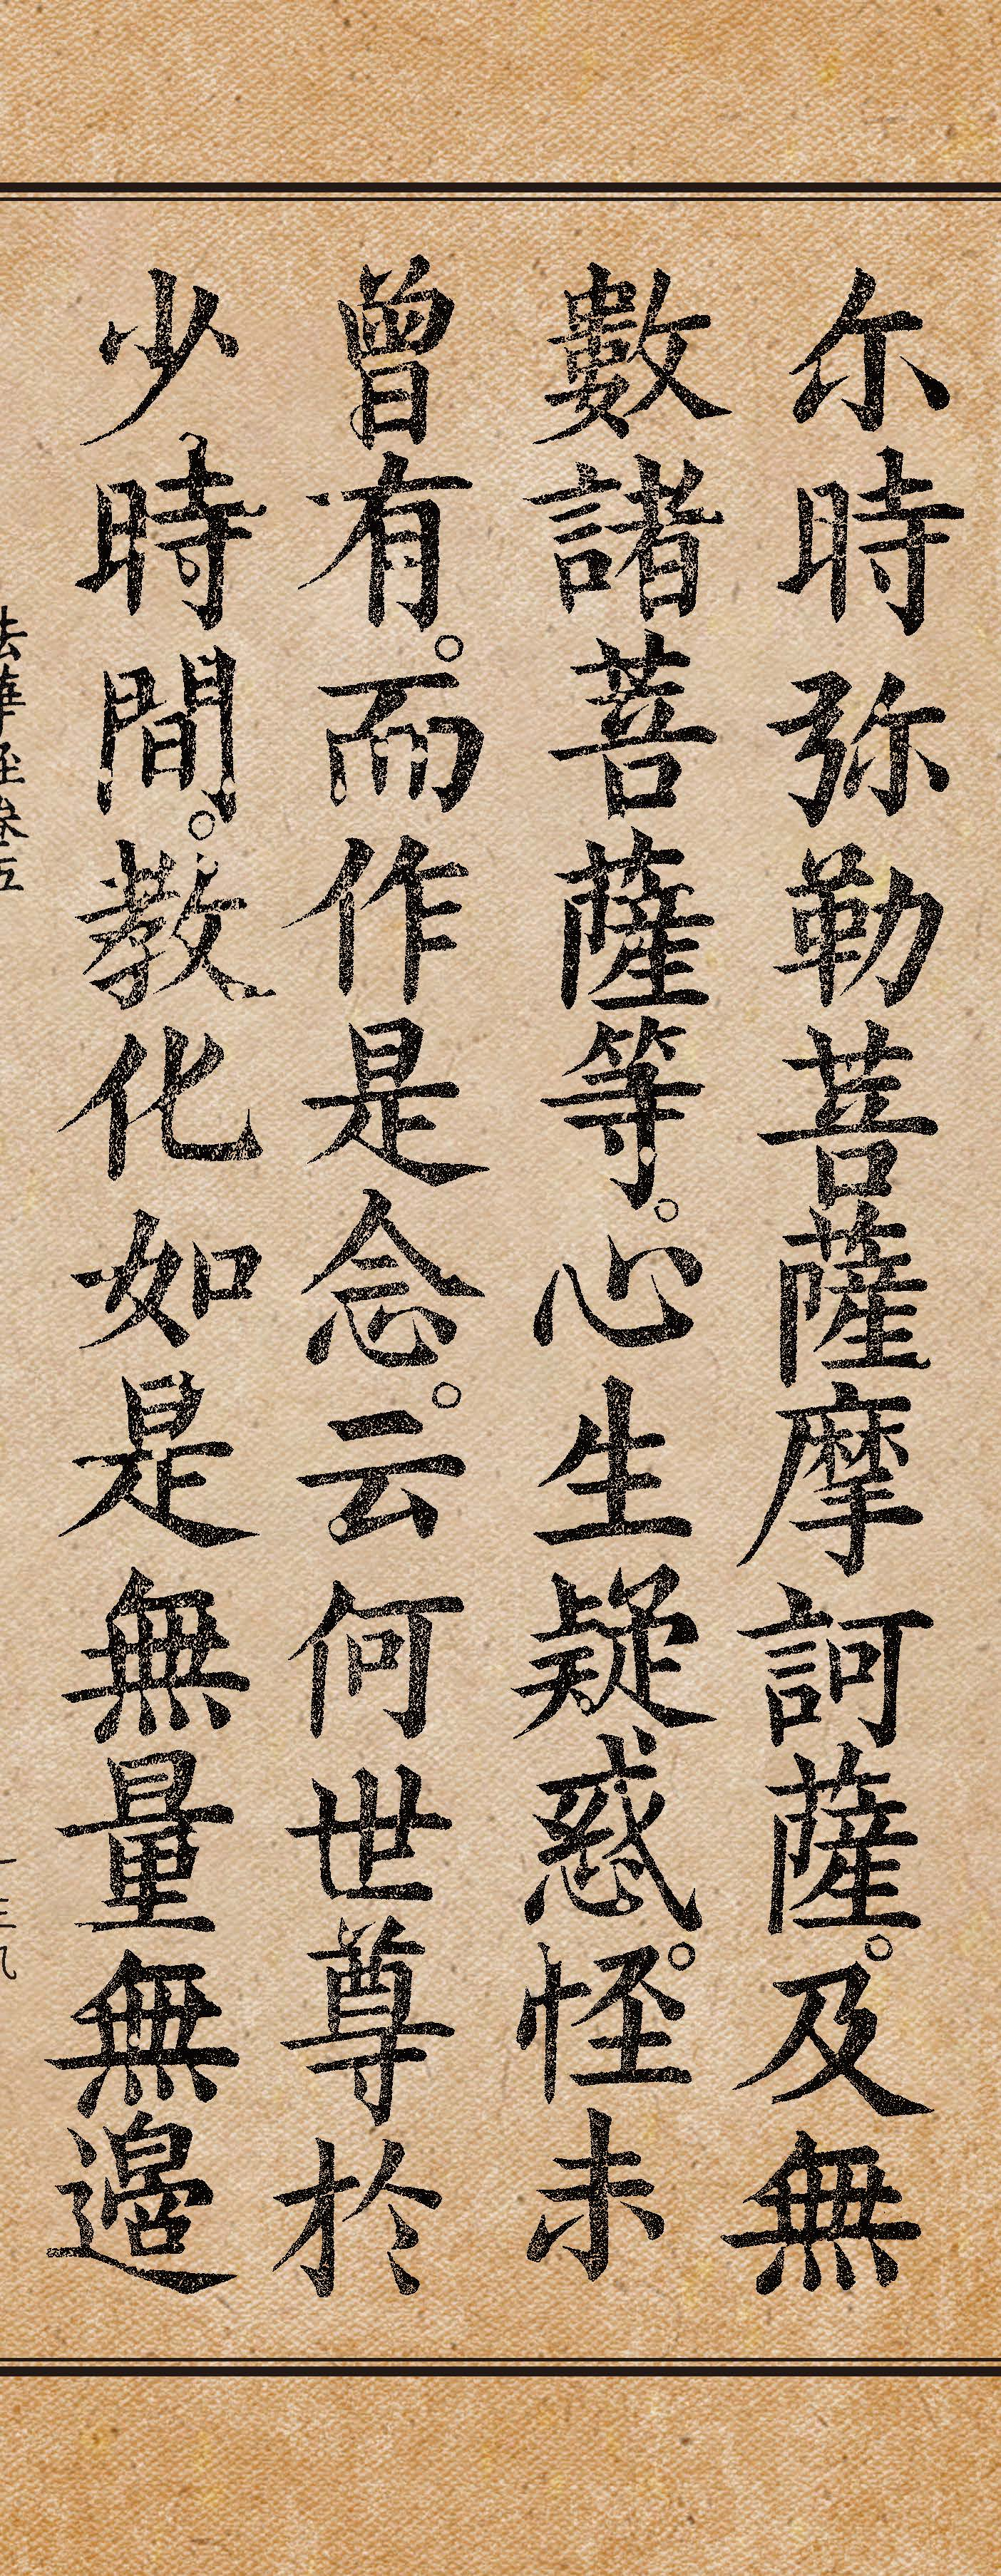 尒時弥勒菩薩摩訶薩。及無
數諸菩薩等。心生疑惑。怪未
曾有。而作是念。云何世尊於
少時間。教化如是無量無邊
法華經卷五